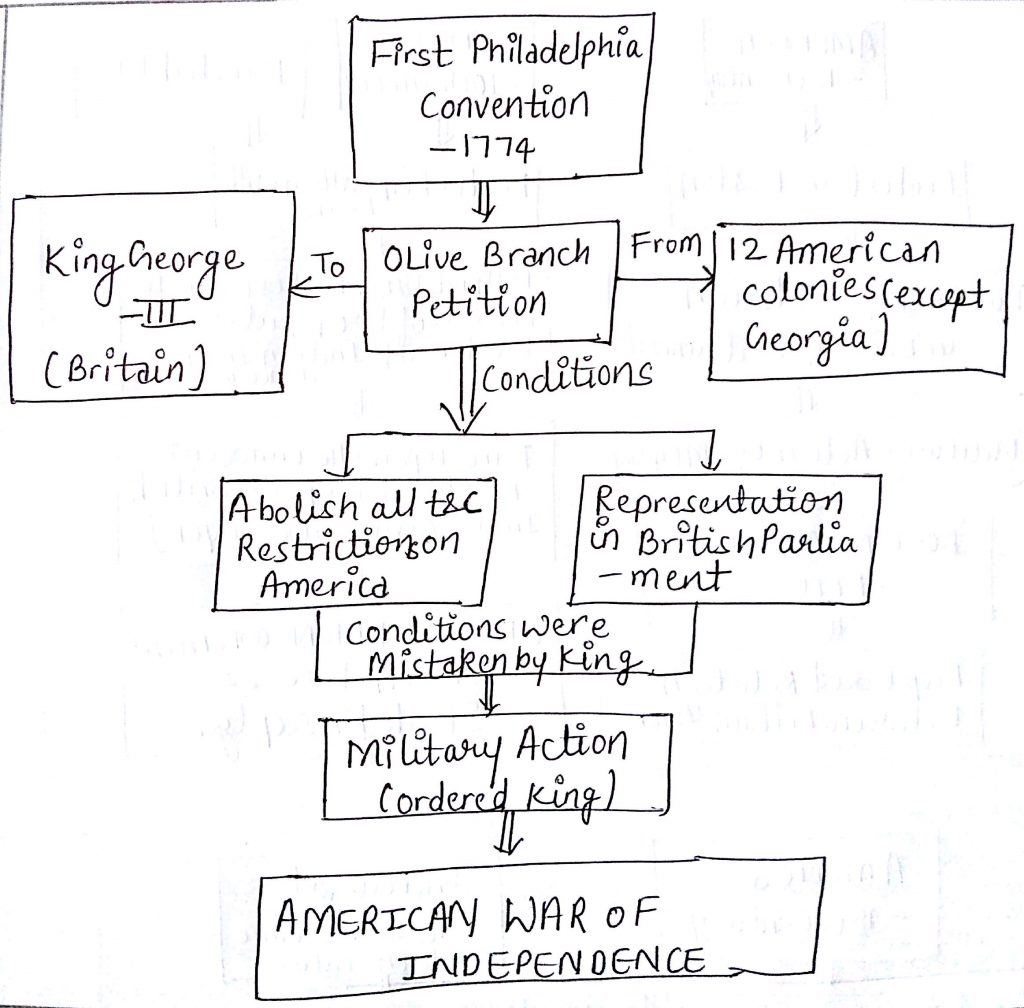 First Philadelphia
Convention
-1774
King George
-III
(Britain)
To
OLive Branch
Petition
From
12 American
colonies (except
Georgia)
Conditions
Abolish all t&c
Restrictions on
America
Representation
in British Parlia
-ment
Conditions were
Mistaken by King
Military Action
(ordered King)
AMERICAN WAR OF
INDEPENDENCE